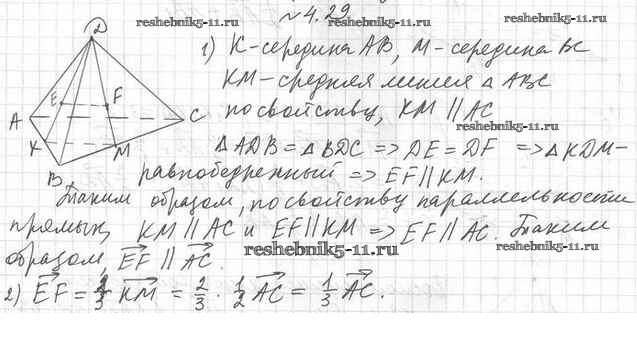 № 4.29
reshebnik5-11.ru
reshebnik5-11.ru
D
1) K-середина AB, M-середина BC
KM-средняя линия △ ABC
reshebnik5-11.ru
E F
по свойству, KM || AC
A C
reshebnik5-11.ru
△ ADB = △ BDC => DE = DF => △ KDM-
K M
равнобедренный => EF || KM.
B
Таким образом, по свойству параллельности
прямых, KM || AC и EF || KM => EF || AC. Таким
образом, EF || AC.
reshebnik5-11.ru
2) EF = 2/3 KM = 2/3 · 1/2 AC = 1/3 AC.